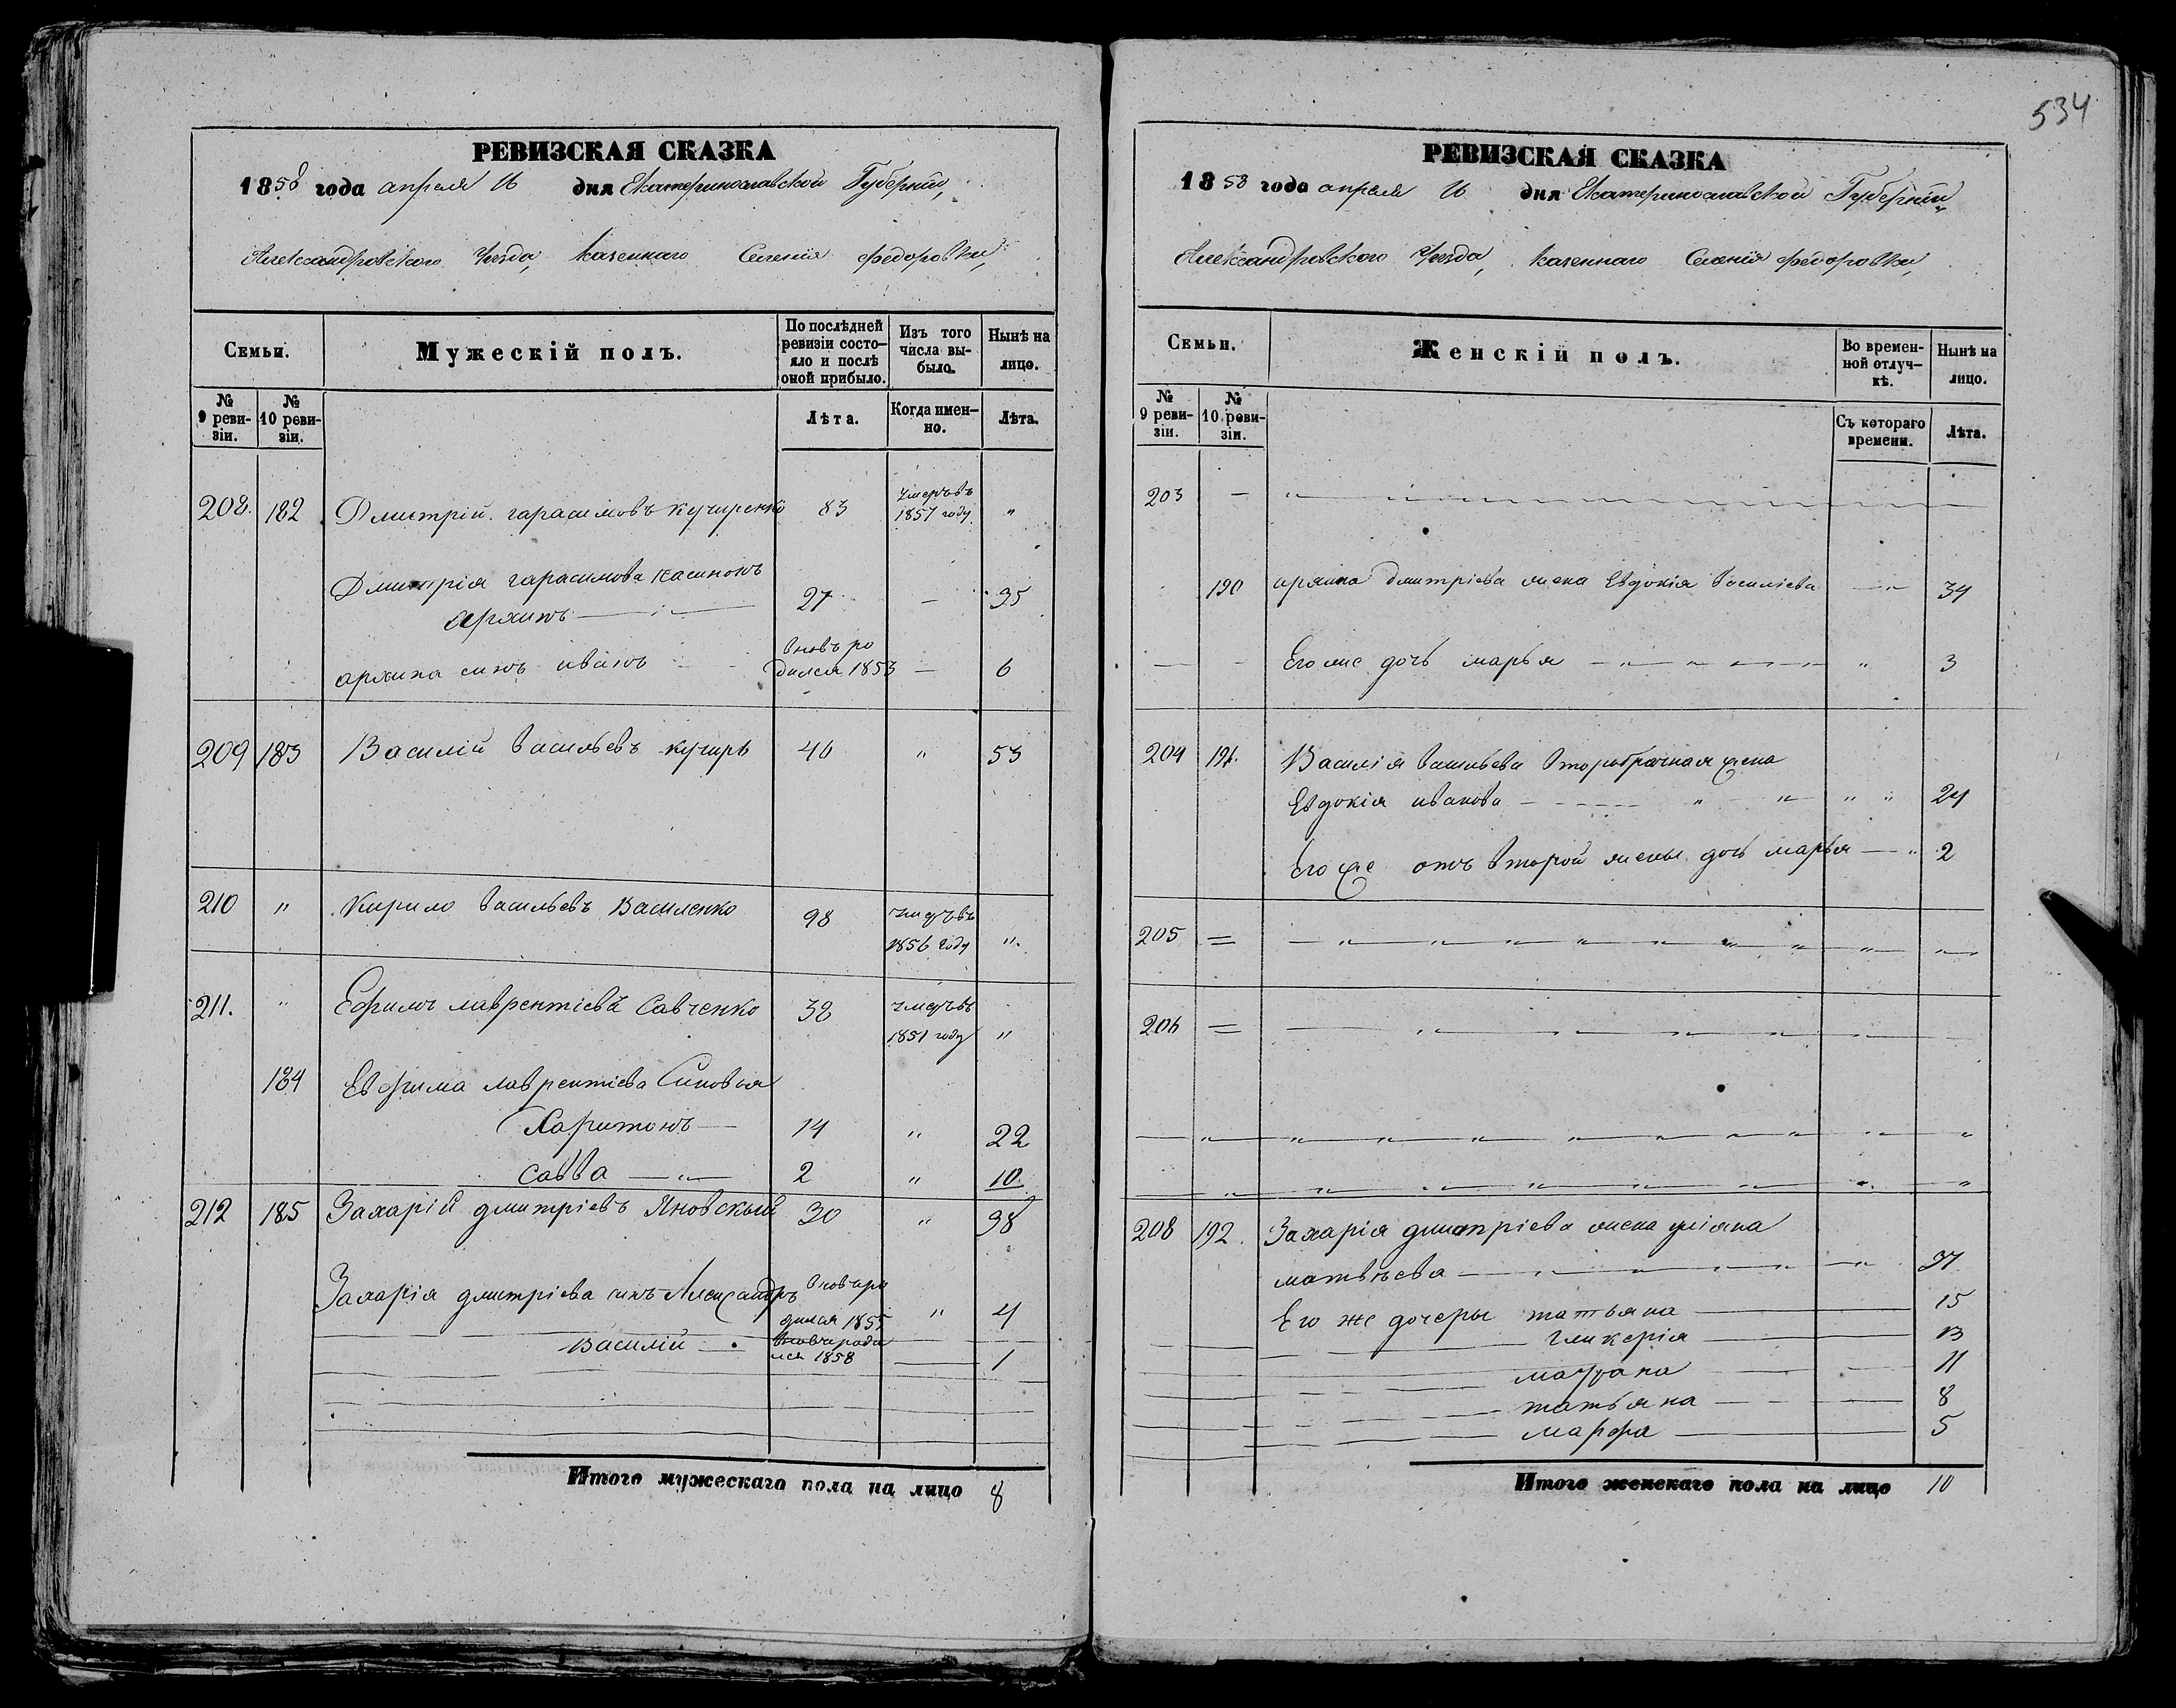 534
РЕВИЗСКАЯ СКАЗКА
1858 года апреля 16 дня Екатеринославской Губерніи,
Александровского Уезда, казеннаго Селенія федоровки,
Семьи.
Мужескій полъ.
По послѣдней ревизіи состояло и послѣ оной прибыло.
Изъ того числа выбыло.
Нынѣ на лицо.
№ 9 ревизіи.
№ 10 ревизіи.
Лѣта.
Когда именно.
Лѣта.
208. 182 Дмитрій гарасимовъ кучиренко 83 умеръ въ 1851 году "
Дмитрія гарасимова
архипъ 27 — 35
архипа сынъ иванъ вновь родился 1853 — 6
209 183 Василій Васильевъ кучиръ 46 " 53
210 " Кирило Васильевъ Василенко 98 умеръ въ 1856 году "
211. " Ефимъ лаврентіевъ Савченко 38 умеръ въ 1851 году "
184 Евфима лаврентіева Синовья
Харитонъ 14 " 22
Савва 2 " 10.
212 185 Захарій дмитріевъ Яновскый 30 " 38
Захарія дмитріева сынъ Александръ вновь родился 1855 " 4
Василій вновь родился 1858 1
Итого мужескаго пола на лицо 8
РЕВИЗСКАЯ СКАЗКА
1858 года апреля 16 дня Екатеринославской Губерніи,
Александровского Уезда, казеннаго Селенія федоровки,
Семьи.
Женскій полъ.
Во временной отлучкѣ.
Нынѣ на лицо.
№ 9 ревизіи.
№ 10 ревизіи.
Съ котораго времени.
Лѣта.
203 —
190 архипа дмитріева жена Евдокія василіева 34
Его же дочь марья " 3
204 191. Василія васильева второбрачная жена
Евдокія иванова " " 24
Его же отъ второй жены дочь марья 2
205 =
206 =
208 192. Захарія дмитріева жена уліяна
матвѣева 37
Его же дочеры татьяна 15
гликерія 13
11
татьяна 8
марфа 5
Итого женскаго пола на лицо 10